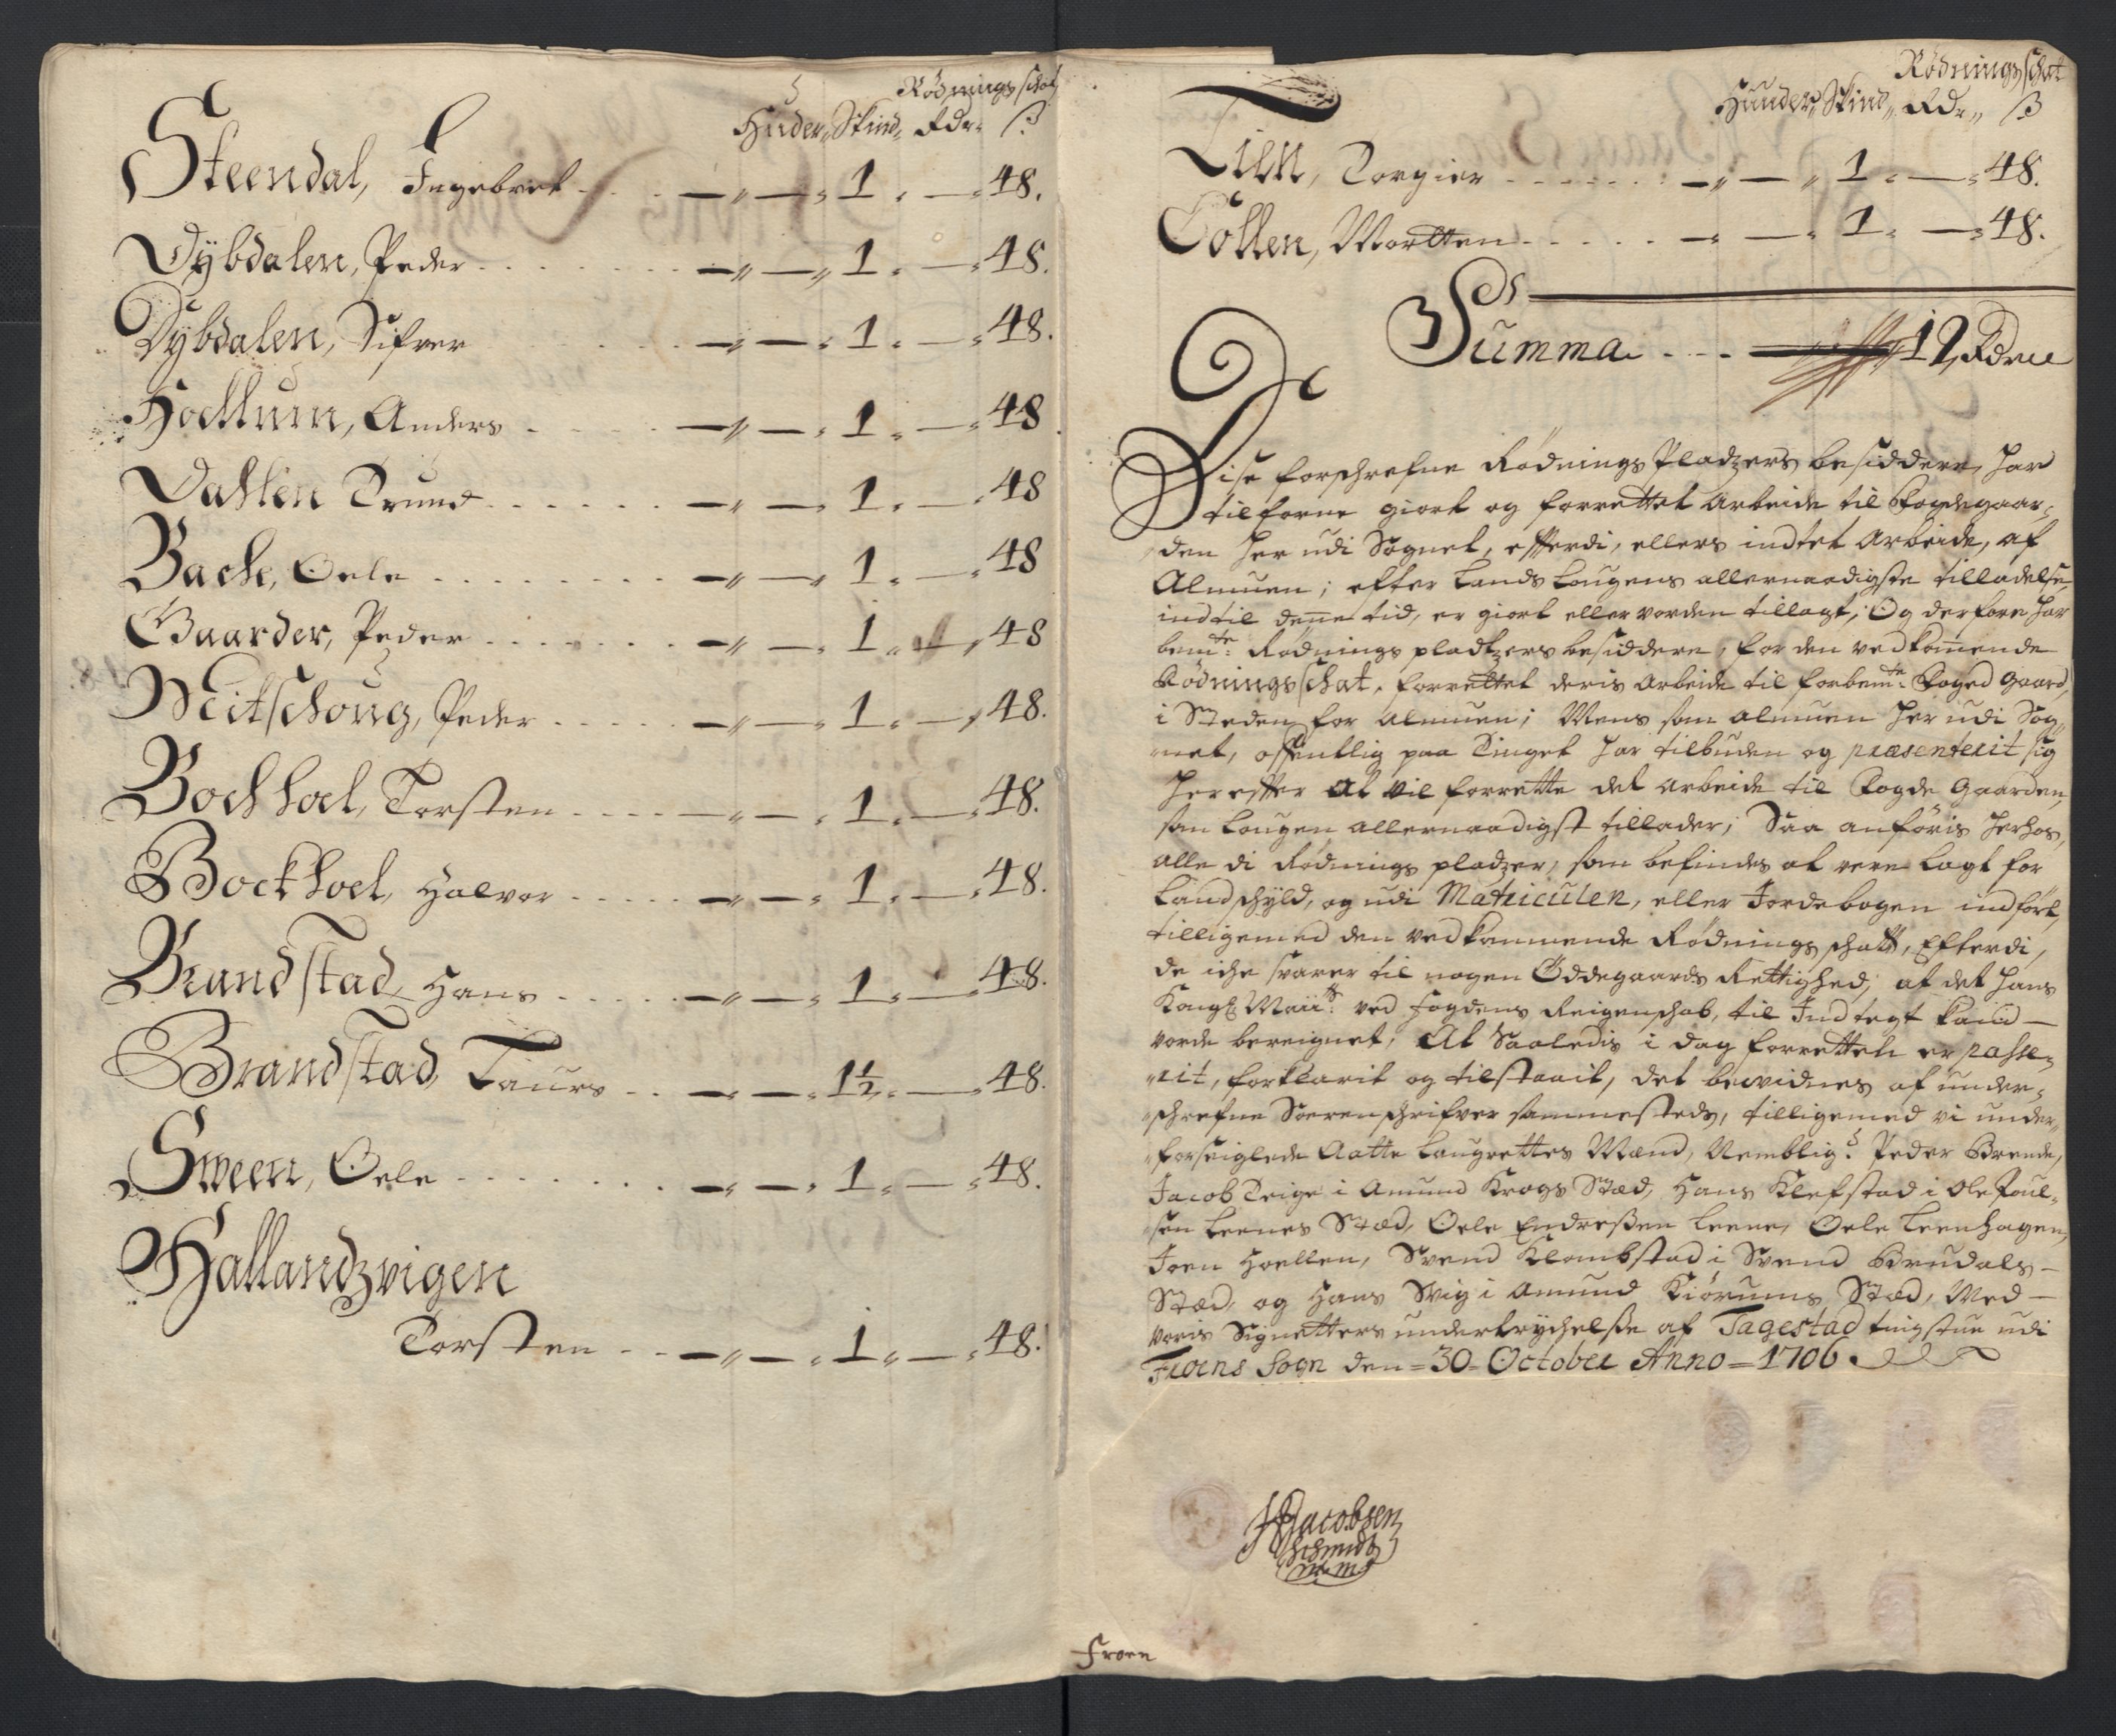 Rødningsschat
Huder, Skind, Rdr, ß
Steendal, Ingebret 1. 48.
Dybdalen, Peder 1. 48.
Dybdalen, Sifver 1. 48.
Hocklum, Anders 1. 48
Dahlen Trund 1. 48
Bach, Oele 1. 48
Gaarder, Peder 1. 48
Peder 1. 48.
Bochhoel, Torsten 1. 48.
Bockhoel, Halvor 1. 48.
Brandstad, Hans 1. 48.
Brandstad, Laurs 1½. 48.
Sween, Oele 1. 48.
Hallandzvigen
Torsten 1. 48.
Rødningsschat
Huuder, Skind, Rdr, ß
Lien, Torgier 1. 48.
Collen, Mortten 1. 48.
Summa 12 Rdr
Dise forschrefne Rødnings Pladzers besiddere, har
tilforne giort og forrettet arbeide til Fogdegaar-
den her udi Sognet, efterdi, ellers indtet arbeide, af
Almuen; efter Lands Lougens allernaadigste tilladelse,
indtil denne tid, er giort eller vorden tillagt; Og derfore har
bemte: Rødnings pladtzers besiddere, for den vedkomende
Rødningsschat, forrettet deris arbeide til forbemte: Foged Gaard,
i Steden for almuen; Mens som almuen her udi Sog-
net, offentlig paa Tinget har tilbuden og præsenterit sig
herefter at vil forrette det arbeide til Fogde Gaarden,
som Lougen allernaadigst tillader; Saa anføris herhos,
alle di Rødnings pladzer, som befindes at vere lagt for
Landschyld, og udi Matriculen, eller Jordebogen indført,
tilligemed den vedkommende Rødnings schatt, Efterdi,
de iche svarer til nogen Øddegaards Rettighed; at det hans
Kongl: Maiits: ved Fogdens Reigenschab, til Indtegt kand
vorde bereignet; At Saaledis i dag forrettet er passe-
rit, forklarit og tilstaait, det bewidnes af under-
schrefne Sorenschrifver sammesteds, tilligemed vi under-
forseiglede Aatte Laugrettes Mænd, Nemblig: Peder Brende,
Jacob Teige i Amund Krogs Stæd, Hans Klefstad i Ole Poul-
sen Leenes Stæd, Oele Endreßen Leene, Oele Leenhagen,
Joen Hoellen, Svend Klombstad i Svend Brudals
Stæd, og Hans Wiig i Amund Kiørums Stæd, Med
voris Signetters undertrychelsße af Tagestad tingstue udi
Froens Sogn den 30 October Anno 1706
Jacobsen
Schmidt
Froen